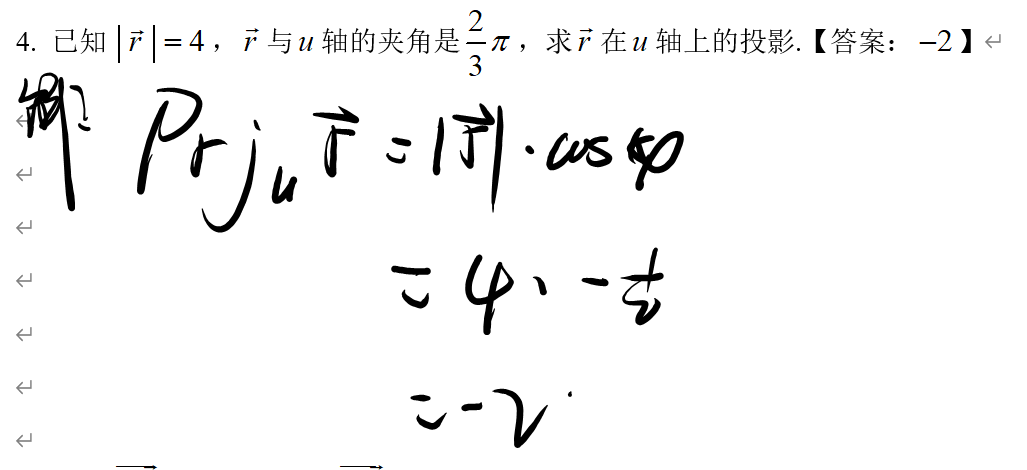 4. 已知 |r⃗| = 4，r⃗ 与 u 轴的夹角是 2/3 π，求 r⃗ 在 u 轴上的投影.【答案：−2】
解: Prj_u r⃗ = |r⃗| · cos φ
= 4 · -1/2
= -2